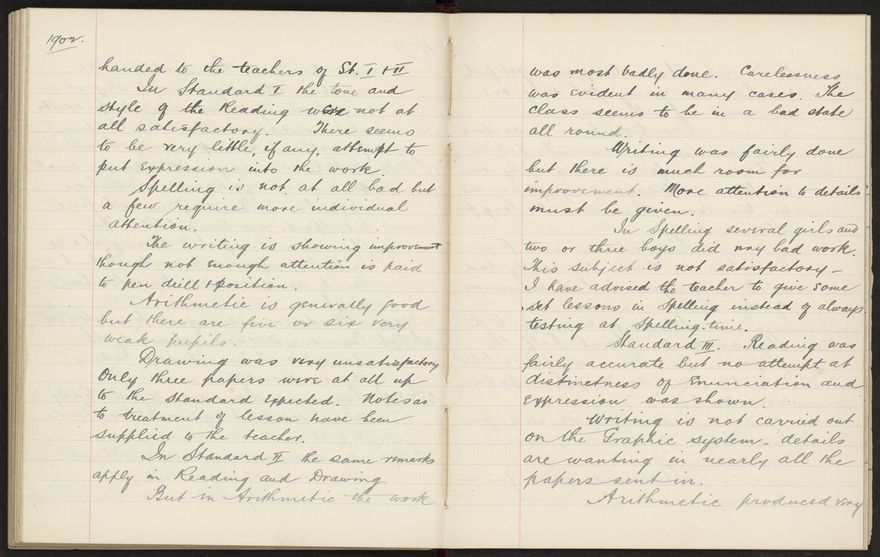 1902.
handed to the teachers of St. I & II
In Standard I the tone and
style of the Reading were not at
all satisfactory. There seems
to be very little, if any, attempt to
put expression into the work.
Spelling is not at all bad but
a few require more individual
attention.
The writing is showing improvement
though not enough attention is paid
to pen drill & position.
Arithmetic is generally good
but there are five or six very
weak pupils.
Drawing was very unsatisfactory
Only three papers were at all up
to the standard expected. Notes as
to treatment of lesson have been
supplied to the teacher.
In Standard II the same remarks
apply in Reading and Drawing.
But in Arithmetic the work
was most badly done. Carelessness
was evident in many cases. The
class seems to be in a bad state
all round.
Writing was fairly done
but there is much room for
improvement. More attention to details
must be given.
In Spelling several girls and
two or three boys did very bad work.
This subject is not satisfactory -
I have advised the teacher to give some
set lessons in Spelling instead of always
testing at Spelling-time.
Standard III. Reading was
fairly accurate but no attempt at
distinctness of enunciation and
expression was shown.
Writing is not carried out
on the Graphic system - details
are wanting in nearly all the
papers sent in.
Arithmetic produced very